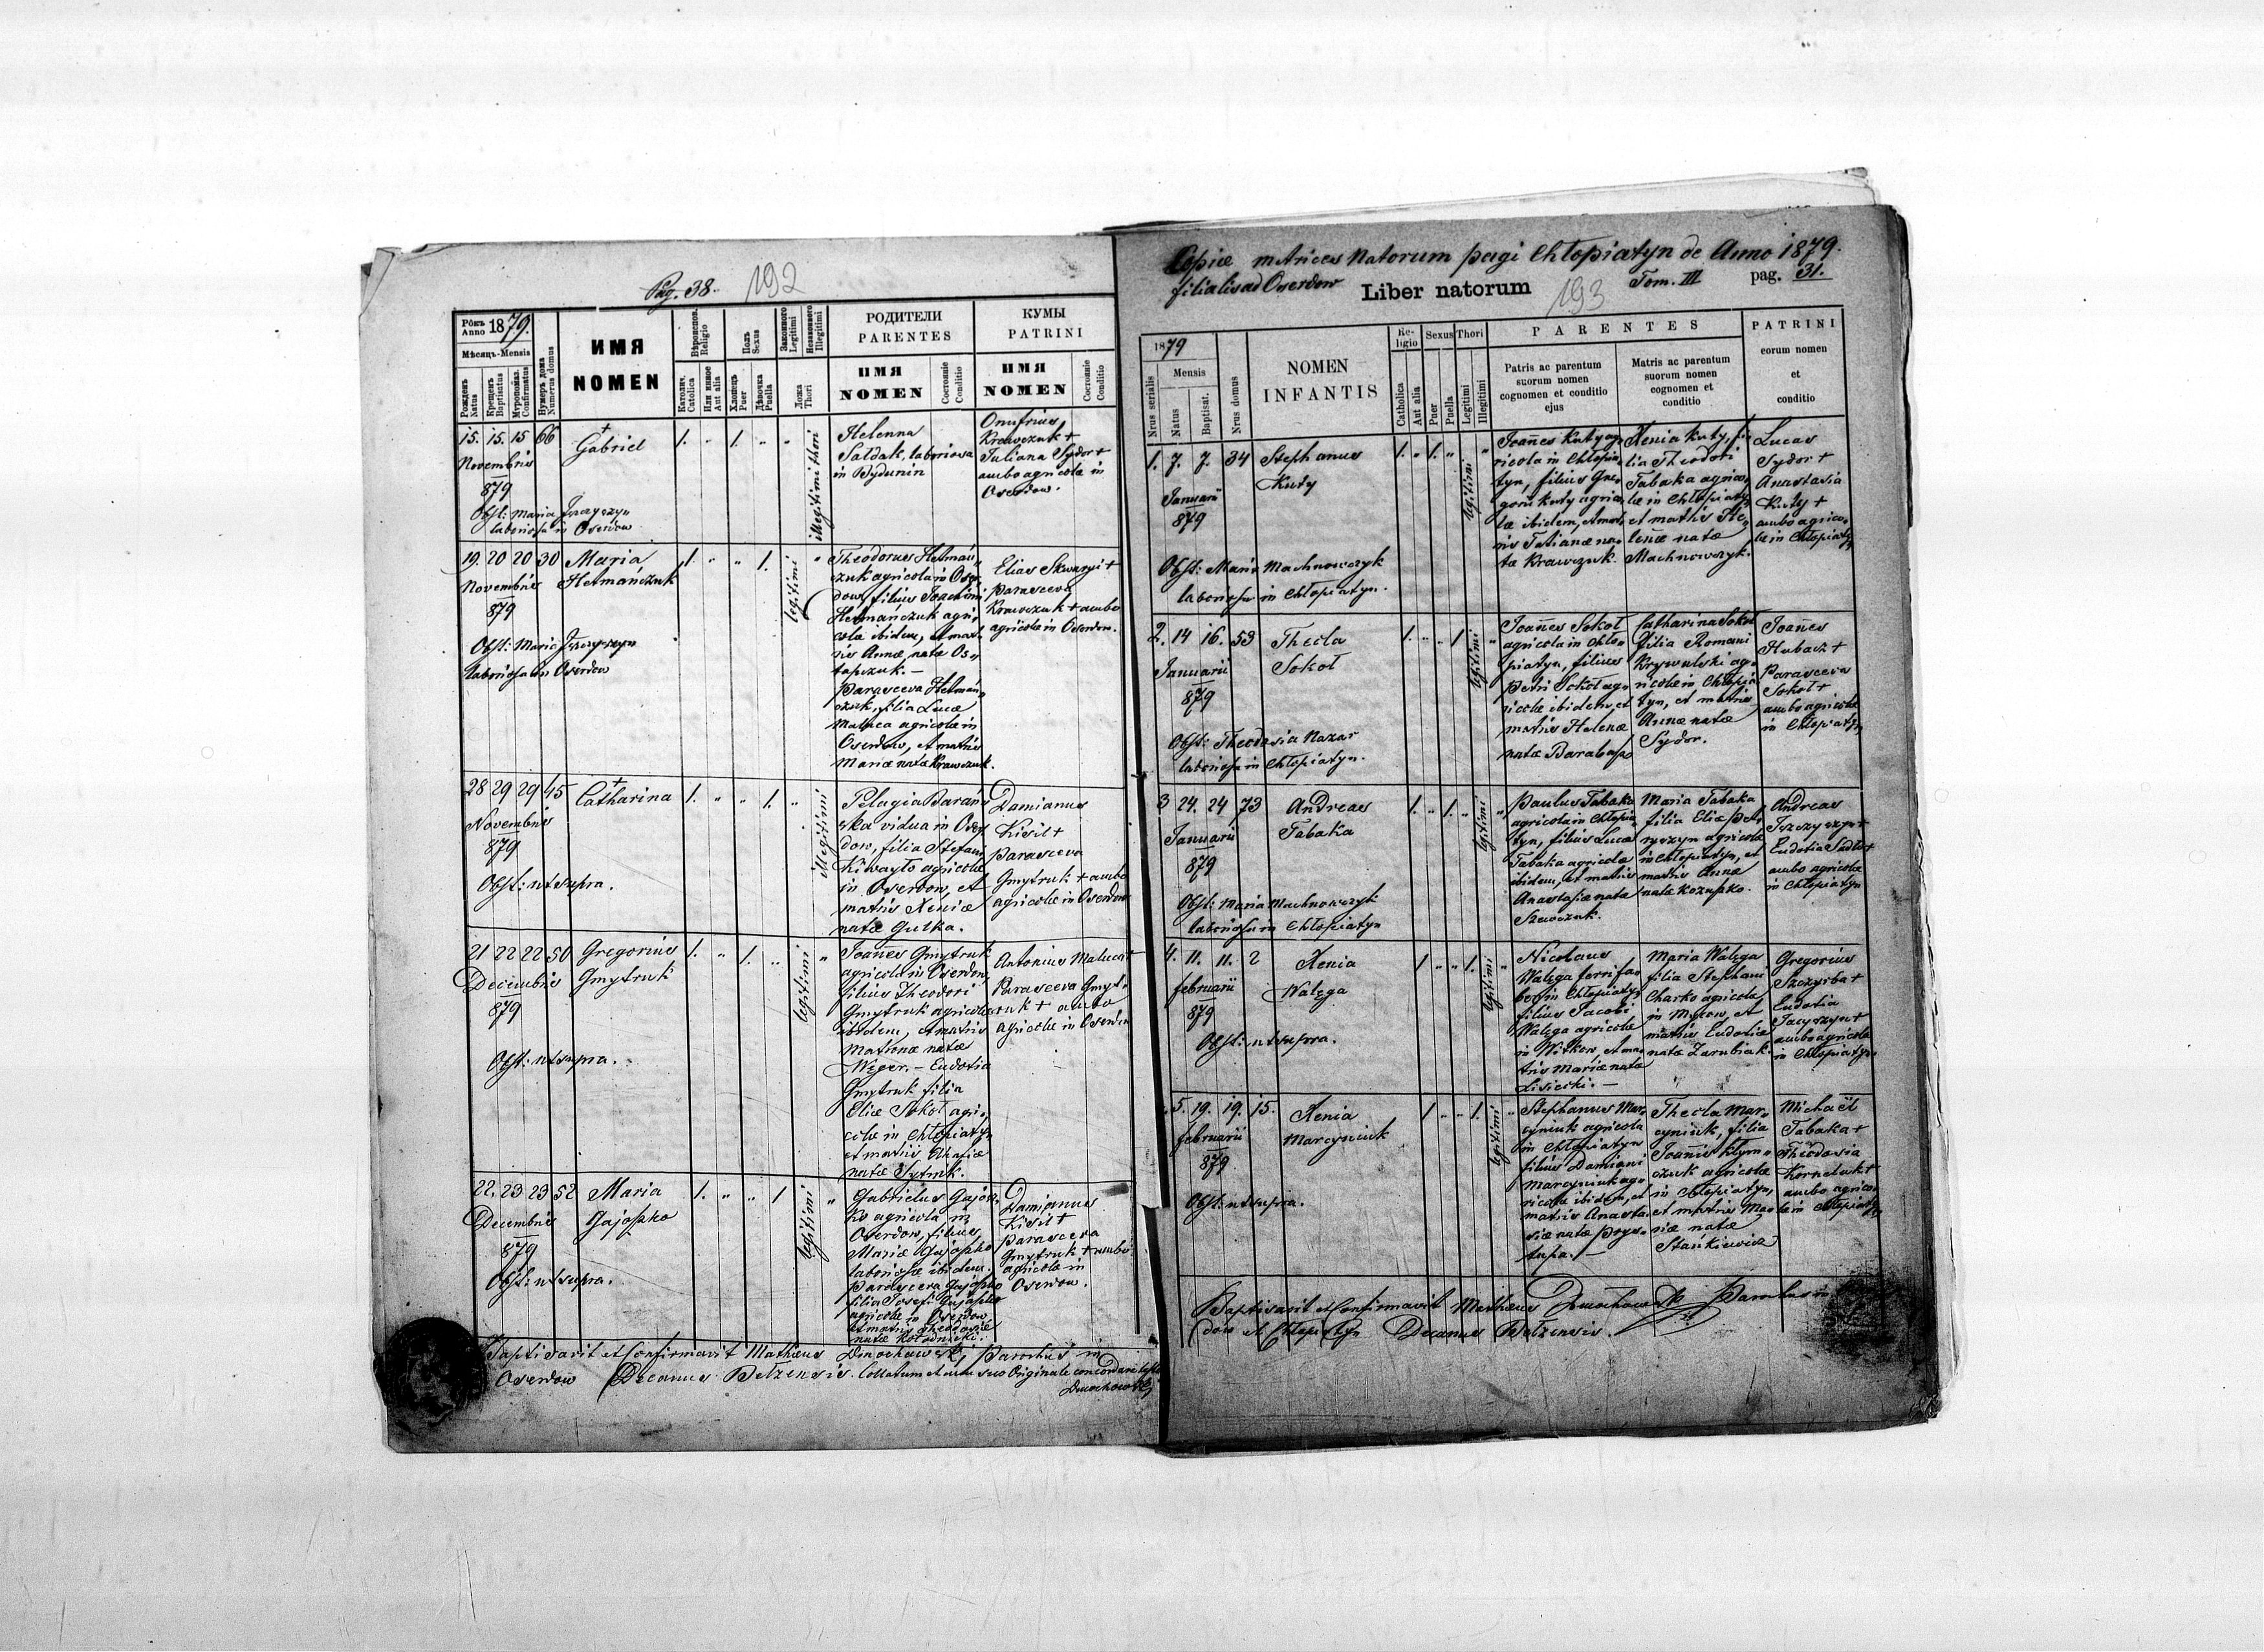 Pag. 38. 192
Рôкъ Anno 1879.
Мѣсяць-Mensis
Рожденъ Natus
Крещенъ Baptisatus
Мѵропомаз. Confirmatus
Нумеръ дома Numerus domus
ИМЯ
NOMEN
Вѣроиспов. Religio
Католич. Catolica
Или инное Aut alia
Полъ Sexus
Хлопець Puer
Дѣвочка Puella
Законного Legitimi
Незаконного Illegitimi
Ложа Thori
РОДИТЕЛИ
PARENTES
ИМЯ
NOMEN
Состояніе Conditio
КУМЫ
PATRINI
ИМЯ
NOMEN
Состояніе Conditio
15. 15. 15 66
Novembris
879
+
Gabriel
1. " 1. " "
illegitimi thori
Helenna
Saldak, laboriosa
in Bydunin
Onufrius
Krawczuk +
Juliana Sydor +
ambo agricolæ in
Oserdow.
Obst: Maria
laboriosa in Oserdow
19. 20 20 30
Novembris
879
Maria
Hetmańczuk
1. " " 1.
legitimi "
Theodorus Hetmań-
czuk agricola in Oser-
dow, filius Joachimi
Hetmańczuk agri-
colæ ibidem, et mat-
ris Annæ, natæ Os-
tapczuk. —
Parasceva Hetmań-
czuk, filia Lucæ
Maluca agricolæ in
Oserdow, et matris
Mariæ natæ Krawczuk.
Elias Skwargi +
Parasceva
Krawczuk + ambo
agricolæ in Oserdow.
Obst: Maria
laboriosa in Oserdow
28 29 29 45
Novembris
879
+
Catharina
1. " " 1. "
illegitimi
Pelagia Barań-
ska vidua in Oser-
dow, filia Stefani
Kiwayło agricolæ
in Oserdow, et
matris Xeniæ
natæ Gulka.
Damianus
Kisil +
Parasceva
Gmytruk + ambo
agricolæ in Oserdow
Obst: ut supra.
21 22 22 50
Decembris
879
Gregorius
Gmytruk
1. " 1. "
legitimi "
Joannes Gmytruk
agricola in Oserdow,
filius Theodori
Gmytruk agricolæ
ibidem, et matris
Matronæ natæ
Weger. — Eudotia
Gmytruk filia
Eliæ Sokoł agri-
colæ in Chłopiatyn
et matris
natæ Sytnik.
Antonius Maluca +
Parasceva Gmyt-
ruk + ambo
agricolæ in Oserdow
Obst: ut supra.
22. 23 23 52
Decembris
879
Maria
Gajoszko
1. " " 1
legitimi "
Gabrielus Gajosz-
ko agricola in
Oserdow, filius
Mariæ Gajoszko
laboriosæ ibidem.
Parasceva Gajoszko
filia Josefi Gajoszko
agricolæ in Oserdow
et matris Theodosiæ
natæ Kołodnicki.
Damianus
Kisil +
Parasceva
Gmytruk + ambo
agricolæ in
Oserdow.
Obst: ut supra.
Baptisavit et Confirmavit Mathæus Dmochowski, Parochus in
Oserdow Decanus Bełzensis. Collatum et cum suo Originale concordare testor
Dmochowski
Copiæ matrices Natorum pagi Chłopiatyn de Anno 1879.
filialis ad Oserdow Liber natorum 193 Tom. III pag. 31.
1879
Mensis
Nrus serialis
Natus
Baptisat.
Nrus domus
NOMEN
INFANTIS
Religio
Catholica
Aut alia
Sexus
Puer
Puella
Thori
Legitimi
Illegitimi
PARENTES
Patris ac parentum
suorum nomen
cognomen et conditio
ejus
Matris ac parentum
suorum nomen
cognomen et
conditio
PATRINI
eorum nomen
et
conditio
1. 7. 7. 34
Januarii
879
Stephanus
Kuty
1. " 1. "
legitimi "
Joannes Kuty ag-
ricola in Chłopia-
tyn, filius Gre-
gorii Kuty agrico-
læ ibidem, et mat-
ris Tatianæ na-
tæ Krawczuk.
Xenia Kuty, fi-
lia Theodori
Tabaka agrico-
læ in Chłopiatyn
et matris He-
lenæ natæ
Machnowczyk.
Lucas
Sydor +
Anastasia
Kuty +
ambo agrico-
læ in Chłopiatyn
Obst: Maria Machnowczyk
laboriosa in Chłopiatyn.
2. 14 16. 53
Januarii
879
Thecla
Sokoł
1. " " 1
legitimi "
Joannes Sokoł
agricola in Chło-
piatyn, filius
Petri Sokoł ag-
ricolæ ibidem, et
matris Helenæ
natæ Barabasz
Catharina Sokoł
filia Romani
Krywulski ag-
ricolæ in Chłopia-
tyn, et matris
Annæ natæ
Sydor.
Joannes
Hubacz +
Parasceva
Sokoł +
ambo agricolæ
in Chłopiatyn
Obst: Theodosia Nazar
laboriosa in Chłopiatyn.
3 24. 24 73
Januarii
879
Andreas
Tabaka
1. " 1. "
legitimi "
Paulus Tabaka
agricola in Chłopia-
tyn, filius Lucæ
Tabaka agricolæ
ibidem, et matris
Anastasiæ natæ
Szewczuk.
Maria Tabaka
filia Eliæ Pet-
ryszyn agricolæ
in Chłopiatyn, et
matris Annæ
natæ Kozuszko.
Andreas
Jszczyszyn +
Eudotia Sadło +
ambo agricolæ
in Chłopiatyn
Obst: Maria Machnowczyk
laboriosa in Chłopiatyn
4. 11. 11. 2
februarii
879
Xenia
Walęga
1 " " 1.
legitimi "
Nicolaus
Walęga ferrifa-
ber in Chłopiatyn
filius Jacobi
Walęga agricolæ
in Witkow, et ma-
tris Mariæ natæ
Lisiecki. —
Maria Walęga
filia Stephani
Charko agricolæ
in Mycow, et
matris Eudotiæ
natæ Zarubiak.
Gregorius
Szczyrba +
Eudotia
Jacyszyn +
ambo agricolæ
in Chłopiatyn.
Obst: ut supra.
5. 19. 19. 15.
februarii
879
Xenia
Marcyniuk
1 " " 1.
legitimi "
Stephanus Mar-
cyniuk agricola
in Chłopiatyn
filius Damiani
Marcyniuk ag-
ricolæ ibidem, et
matris Anasta-
siæ natæ Prys-
tupa. —
Thecla Mar-
cyniuk, filia
Joannis Klym-
czuk agricolæ
in Chłopiatyn,
et matris Ma-
riæ natæ
Stańkiewicz
Michaël
Tabaka +
Theodosia
Korneluk +
ambo agrico-
læ in Chłopiatyn
Obst: ut supra.
Baptisavit et Confirmavit Mathæus Dmochowski Parochus in
dow et Chłopiatyn Decanus Bełzensis.